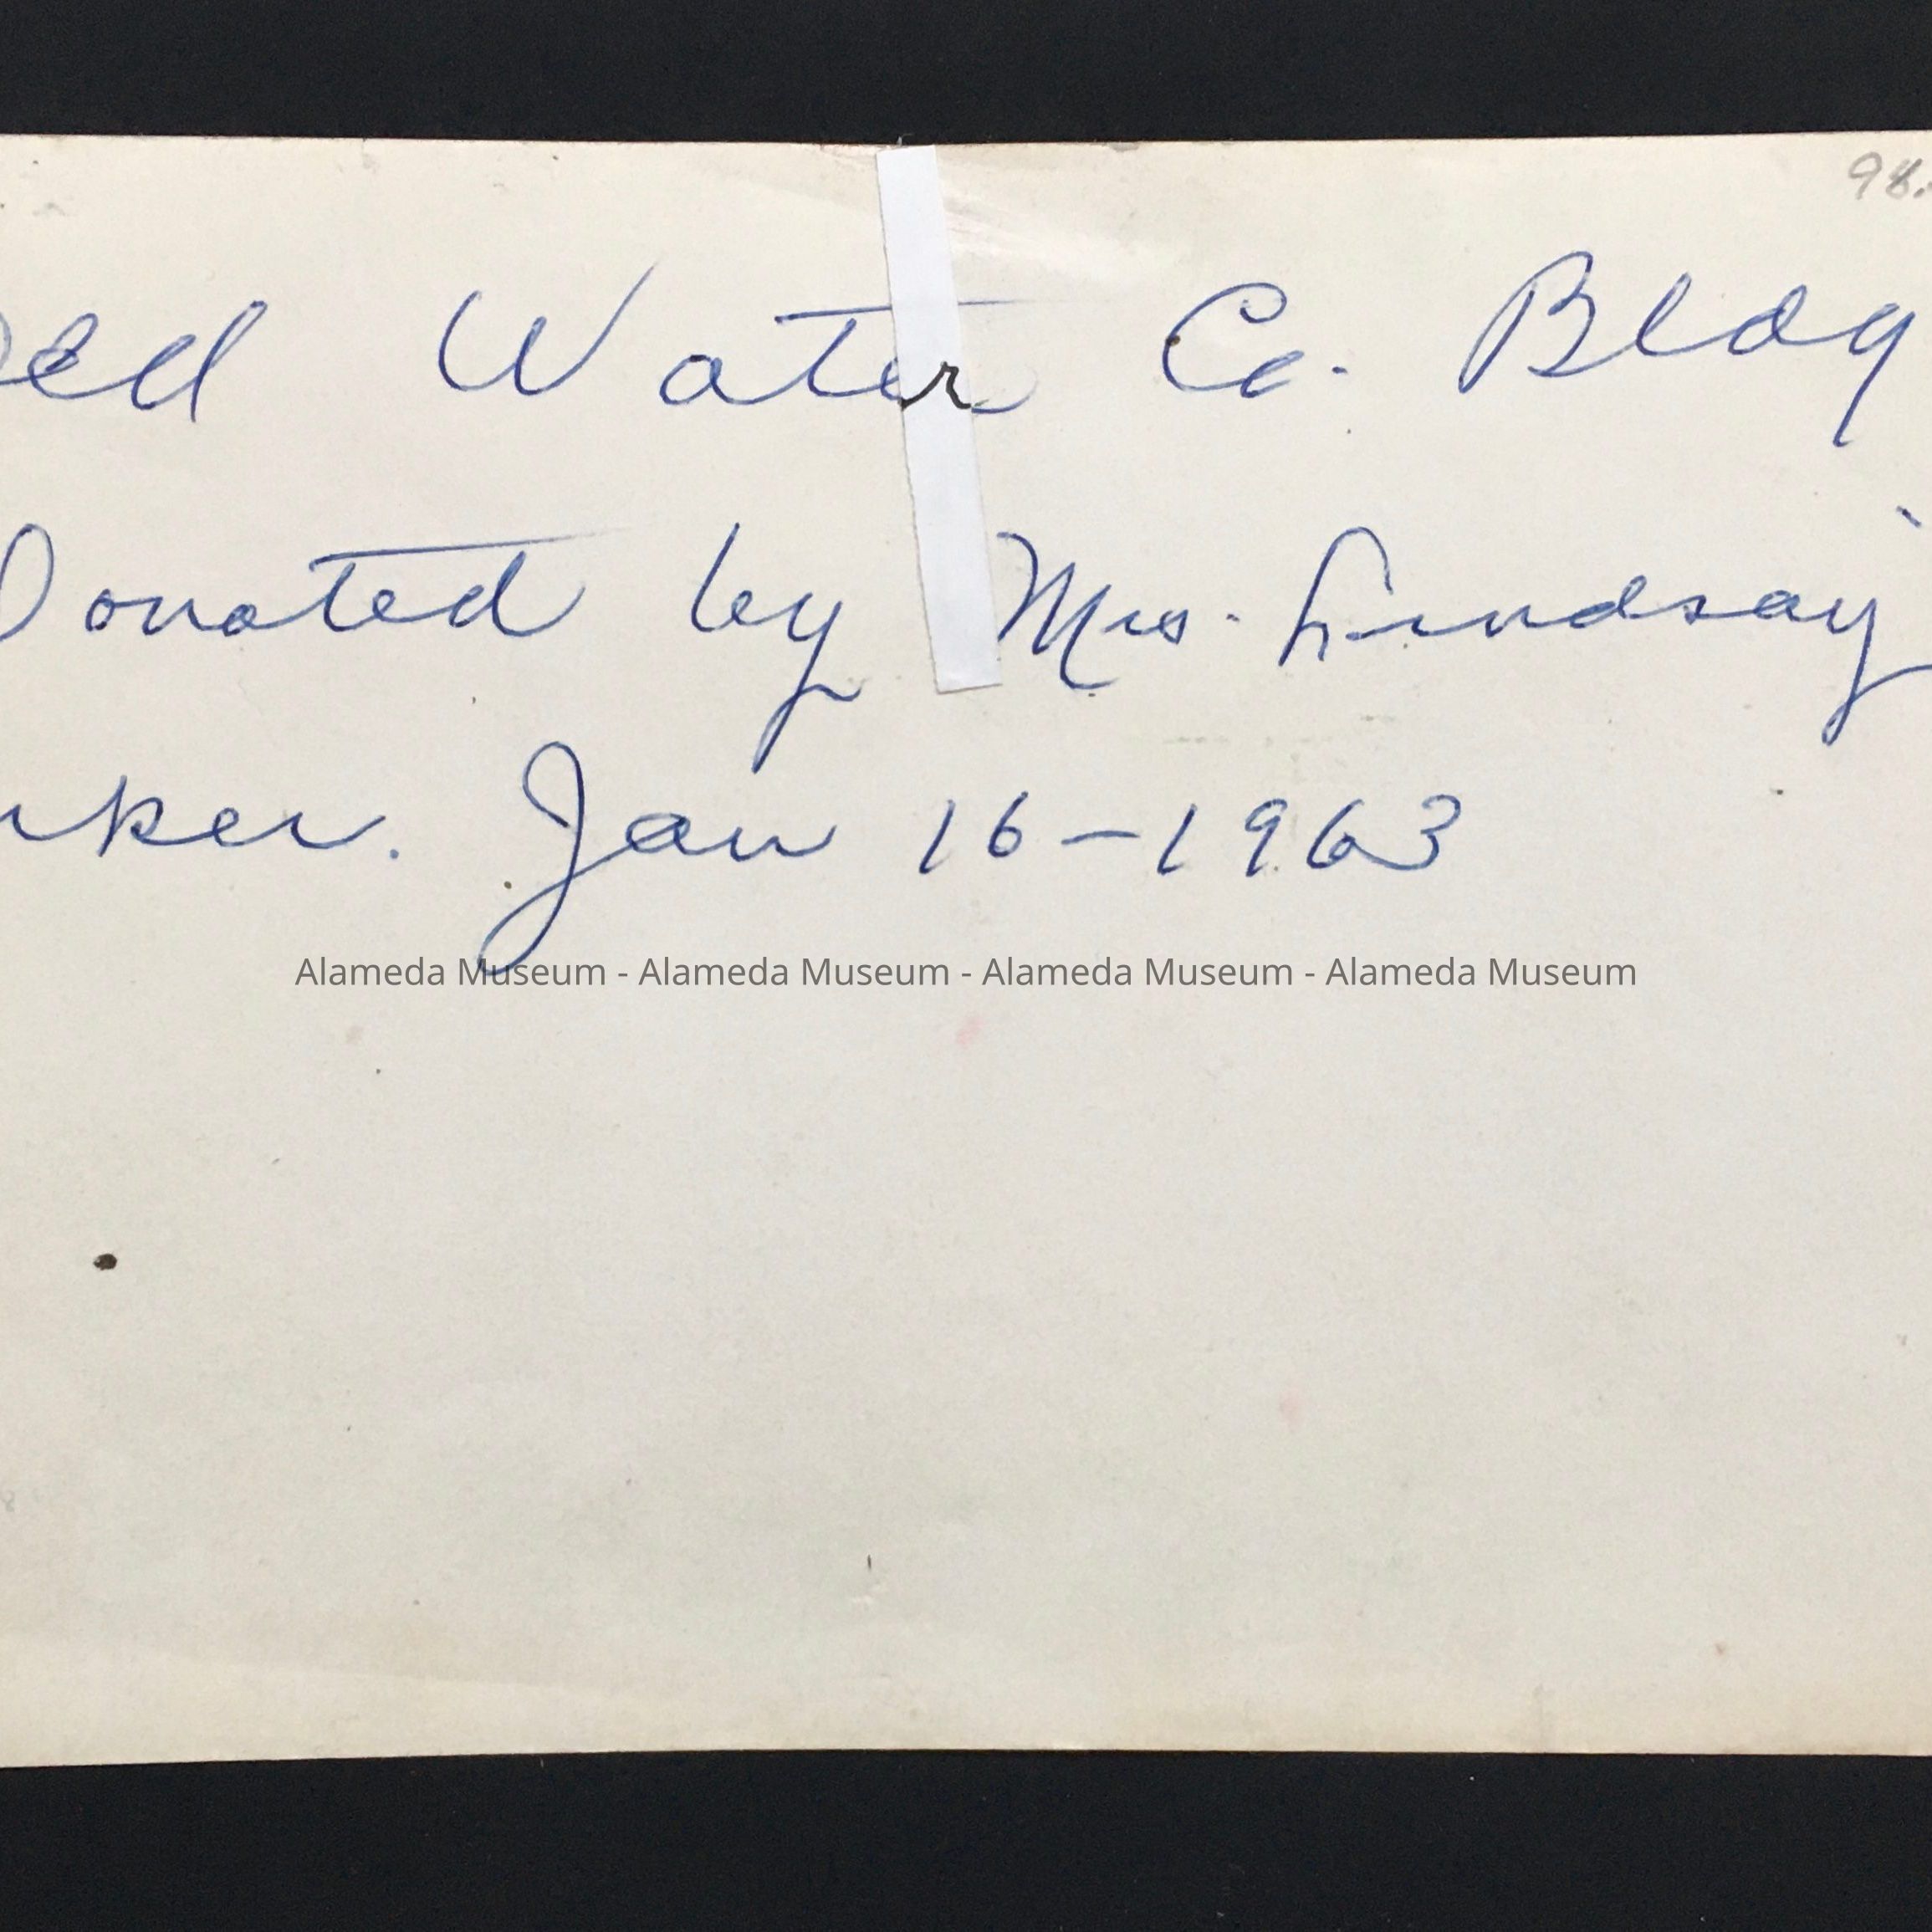 98.
Old Water Co. Bldg
Donated by Mrs. Lindsay
Jan 16-1963
Alameda Museum - Alameda Museum - Alameda Museum - Alameda Museum